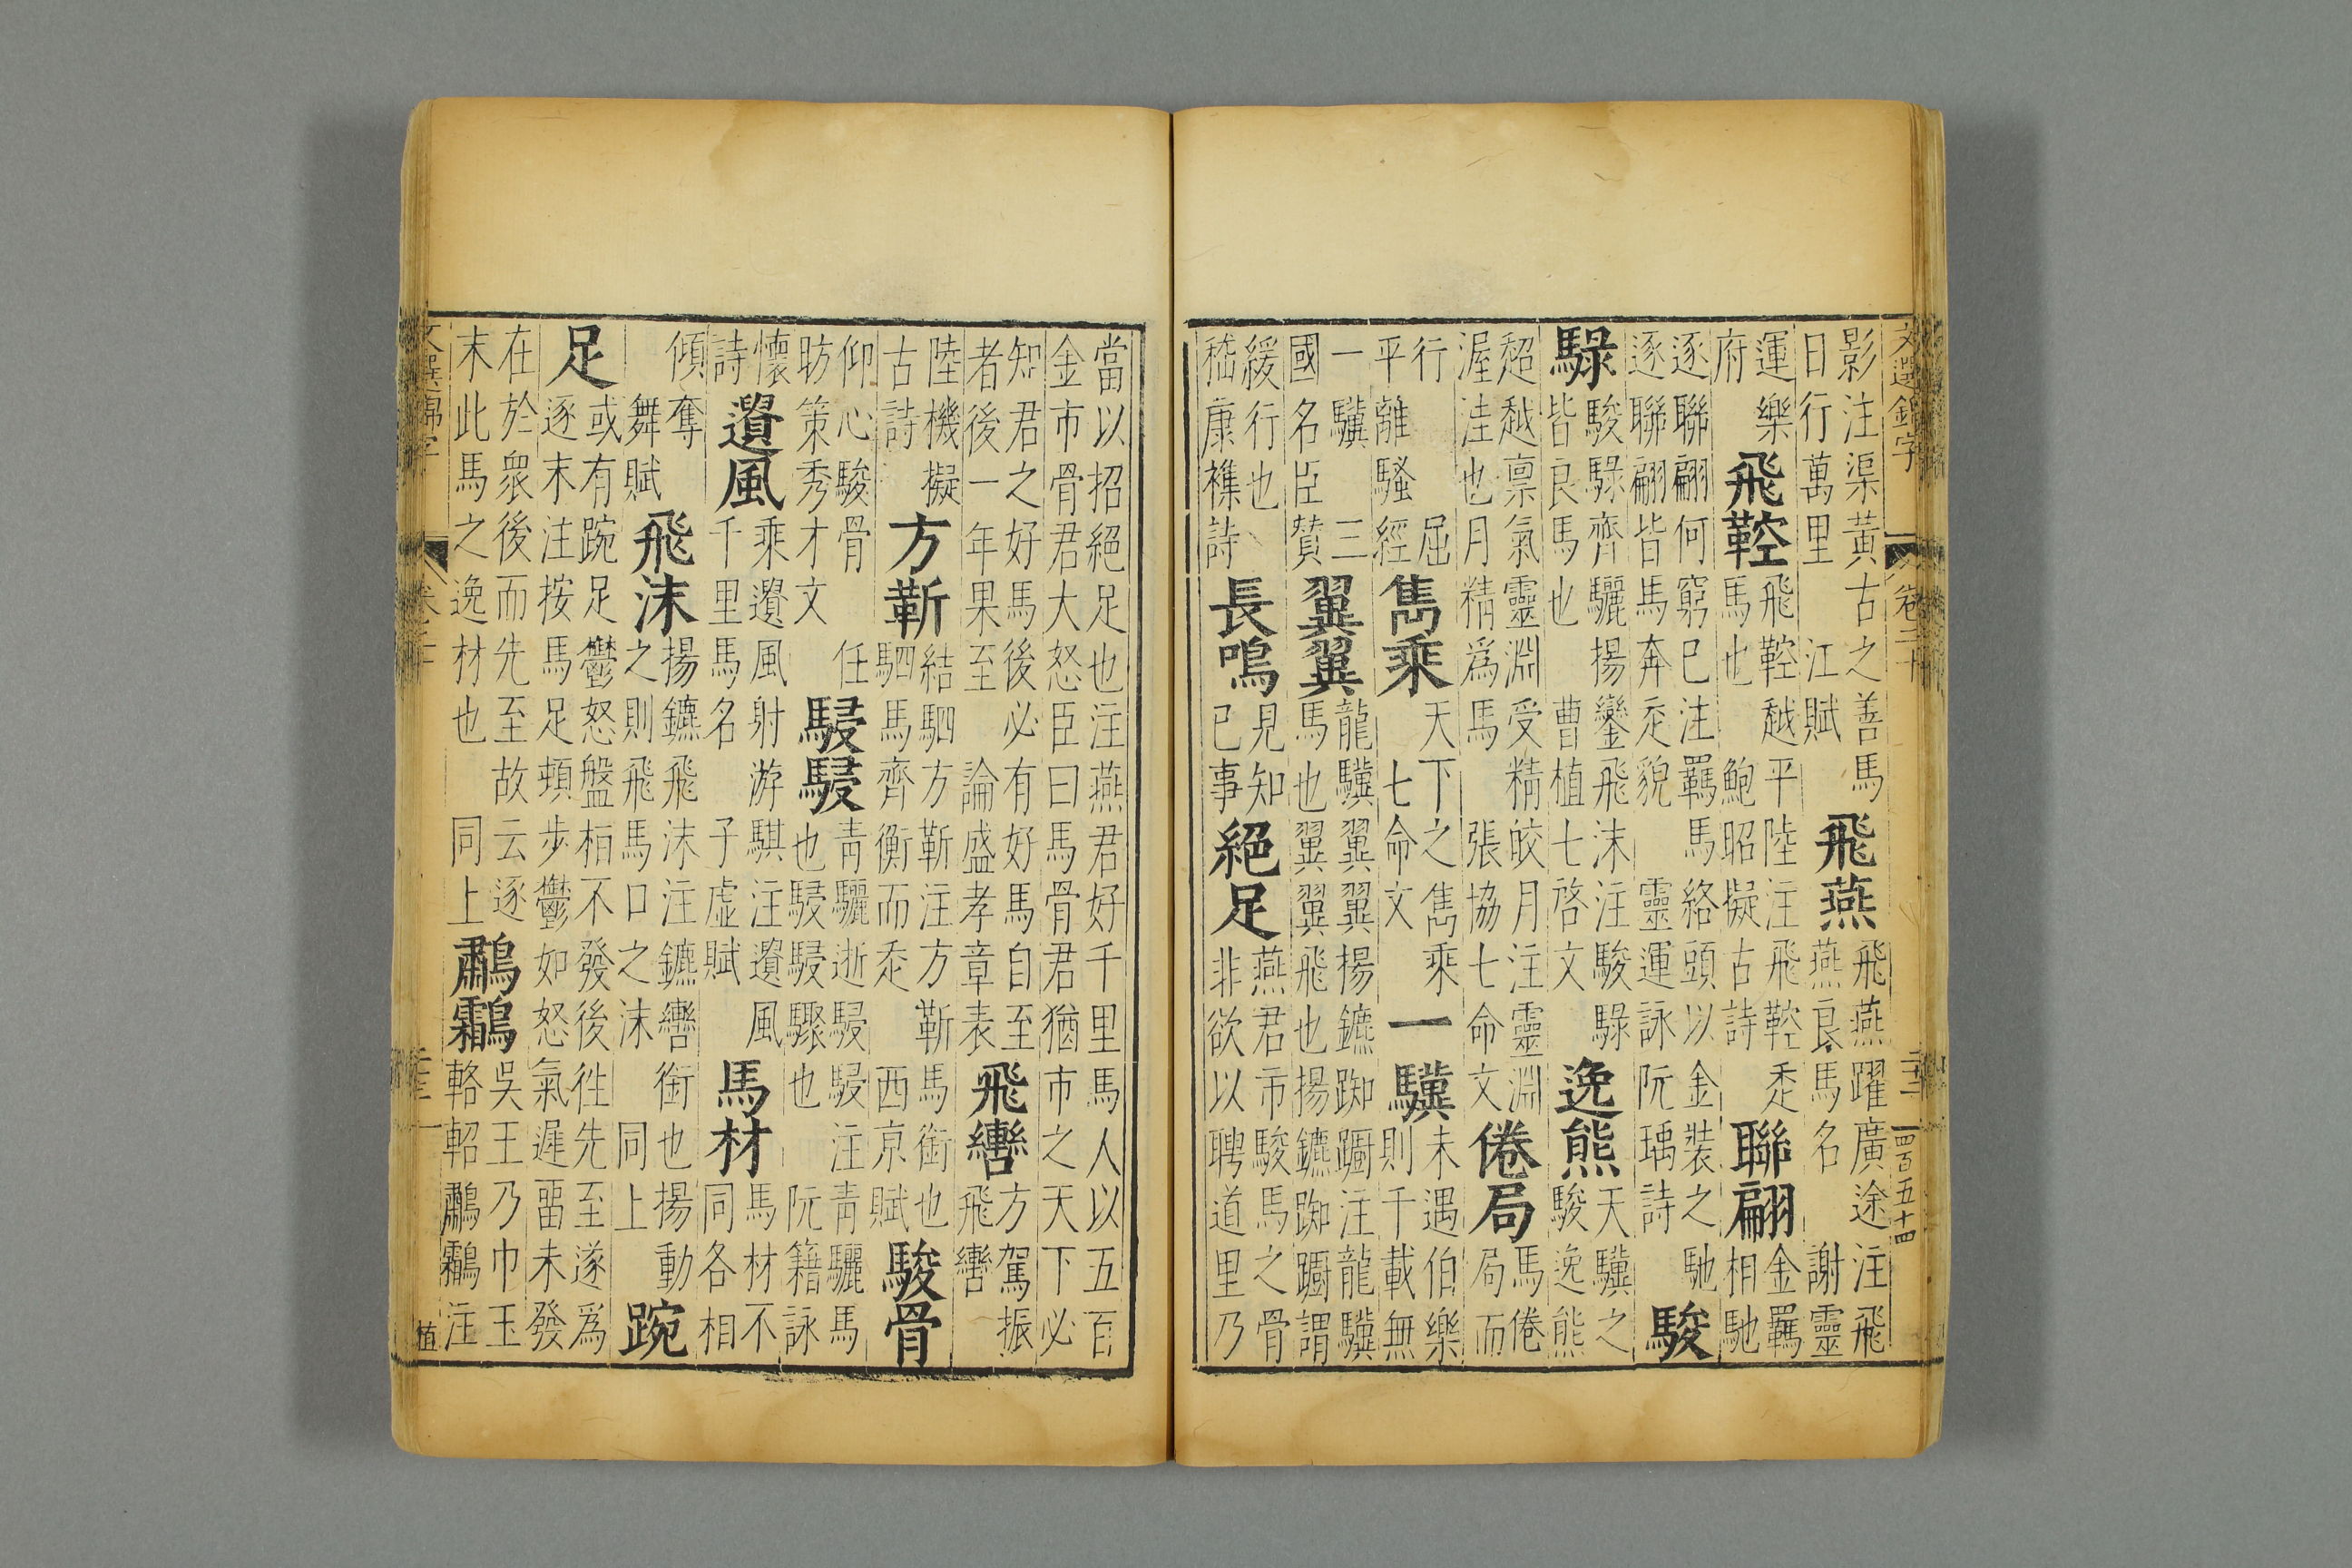 文選錦字 卷二十 二十二 四百五十四
影注渠黃古之善馬
日行萬里 江賦
飛燕
飛燕躍廣途注飛
燕良馬名 謝靈
運樂
府
飛鞚
飛鞚越平陸注飛鞚走
馬也 鮑昭擬古詩
聯翩
金羈
相馳
逐聯翩何窮已注羈馬絡頭以金裝之馳
逐聯翩皆馬奔走貌 靈運詠阮瑀詩
駿
騄
駿騄齊驪揚鑾飛沫注駿騄
皆良馬也 曹植七啓文
逸熊
天驥之
駿逸熊
超越禀氣靈淵受精皎月注靈淵
渥洼也月精爲馬 張協七命文
倦局
馬倦
局而
行 屈
平離騷經
雋乘
天下之雋乘
七命文
一驥
未遇伯樂
則千載無
一驥 三
國名臣贊
翼翼
龍驥翼翼揚鑣踟躅注龍驥
馬也翼翼飛也揚鑣踟躅謂
緩行也
嵇康襍詩
長鳴
見知
已事
絕足
燕君市駿馬之骨
非欲以聘道里乃
當以招絕足也注燕君好千里馬人以五百
金市骨君大怒臣曰馬骨君猶市之天下必
知君之好馬後必有好馬自至
者後一年果至 論盛孝章表
飛轡
方駕振
飛轡
陸機擬
古詩
方蘄
結駟方蘄注方蘄馬銜也
駟馬齊衡而走 西京賦
駿骨
仰心駿骨 任
昉策秀才文
駸駸
青驪逝駸駸注青驪馬
也駸駸驟也 阮籍詠
懷
詩
遺風
乘遺風射游騏注遺風
千里馬名 子虛賦
馬材
馬材不
同各相
傾奪
舞賦
飛沫
揚鑣飛沫注鑣轡銜也揚動
之則飛馬口之沫 同上
踠
足
或有踠足鬱怒盤桓不發後徃先至遂爲
逐末注按馬足頓步鬱如怒氣遲畱未發
在於衆後而先至故云逐
末此馬之逸材也 同上
鷫鸘
吳王乃巾玉
輅軺鷫鸘注
文選錦字 卷二十 植